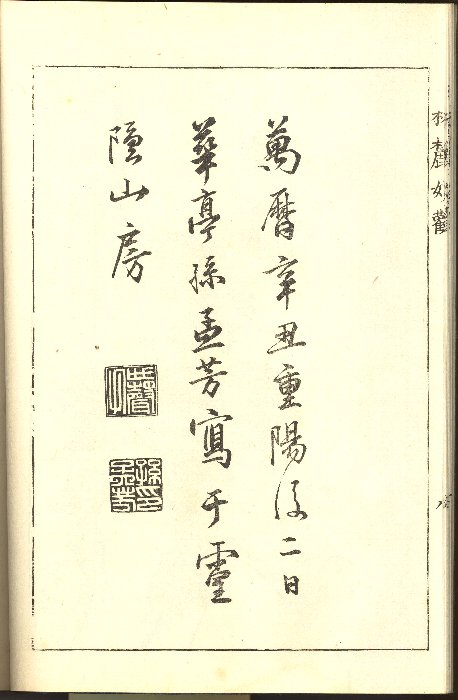 萬曆辛丑重陽後二日
華亭孫孟芳寫于靈
隱山房